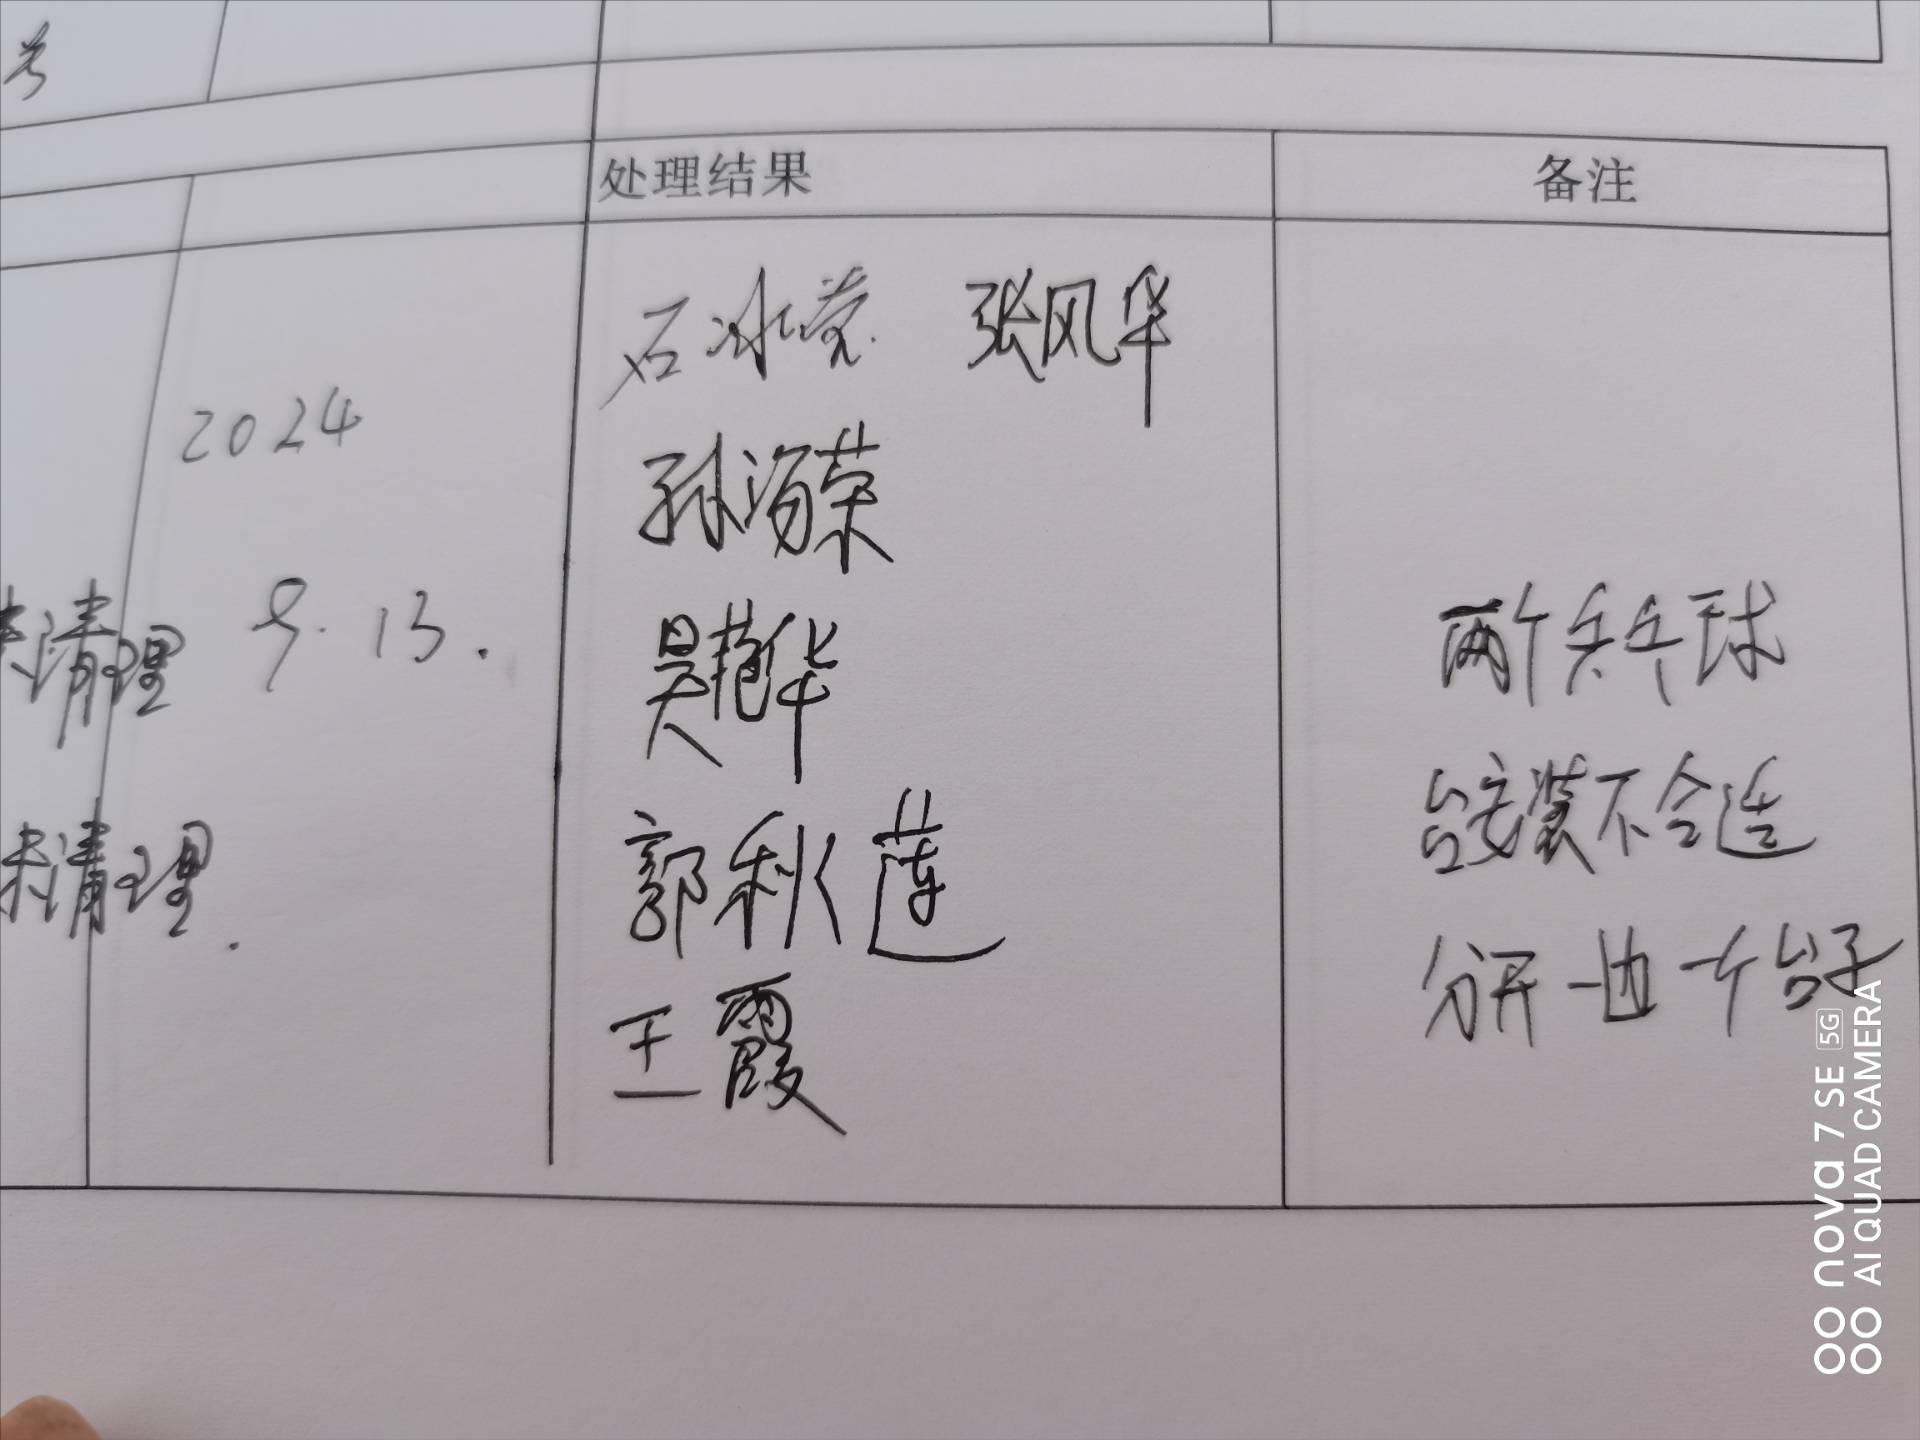 处理结果 备注
石冰莹 张风华
2024
孙海荣
未清理 9.13.
吴艳华
两个乒乓球
未清理.
郭秋莲
台安装不合适
王霞
分开一边一个台子
nova 7 SE 5G
AI QUAD CAMERA